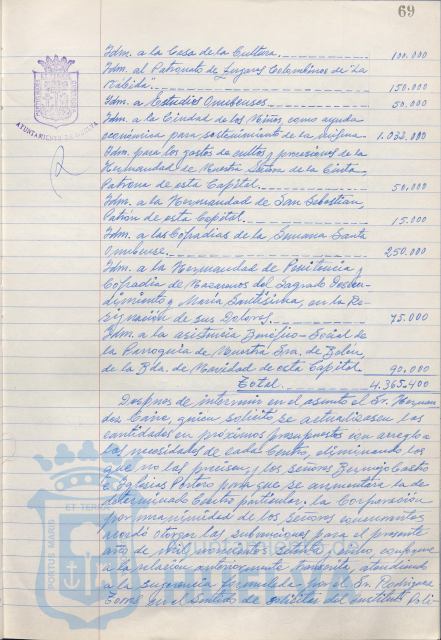 69
Idm. a la Casa de la Cultura. 100.000
Idm. al Patronato de Lugares Colombinos de "La
Rábida" 150.000
Idm. a Estudios Onubenses 50.000
Idm. a la Ciudad de los Niños, como ayuda
económica para sostenimiento de la misma. 1.032.000
Idm. para los gastos de cultos y procesiones de la
Hermandad de Nuestra Señora de la Cinta,
Patrona de esta Capital. 50.000
Idm. a la Hermandad de San Sebastián,
Patrón de esta Capital. 15.000
Idm. a las Cofradías de la Semana Santa
Onubense. 250.000
Idm. a la Hermandad de Penitencia y
Cofradía de Nazarenos del Sagrado Descen-
dimiento y María Santísima, en la Re-
signación de sus Dolores. 75.000
Idm. a la asistencia Benéfico-Social de
la Parroquia de Nuestra Sra. de Belén,
de la Bda. de Navidad de esta Capital. 90.000
Total. 4.365.400
Despues de intervenir en el asunto el Sr. Hernan-
dez Cano, quien solicitó se actualizasen las
cantidades en próximos Presupuestos con arreglo a
las necesidades de cada Centro, eliminando los
que no las precisen, y los señores Bermejo Castro
e Iglesias Portero para que se aumentara la de
determinado Centro particular, la Corporación
por unanimidad de los señores concurrentes
acordó otorgar las subvenciones para el presente
año de mil novecientos setenta y cinco, conforme
a la relación anteriormente transcrita, atendiendo
a la sugerencia formulada por el Sr. Rodríguez
Torres en el sentido de solicitar del Instituto Poli-
AYUNTAMIENTO DE HUELVA
PORTUS MARIS
ET TERR